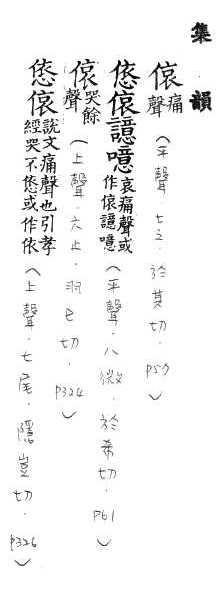 集韻
偯 痛聲（平聲．七之．於其切．P57）
㥋偯譩噫 哀痛聲或作偯譩噫（平聲．八微．於希切．P61）
偯 哭餘聲（上聲．六止．羽已切．P324）
㥋偯 說文痛聲也引孝經哭不㥋或作依（上聲．七尾．隱豈切．P326）